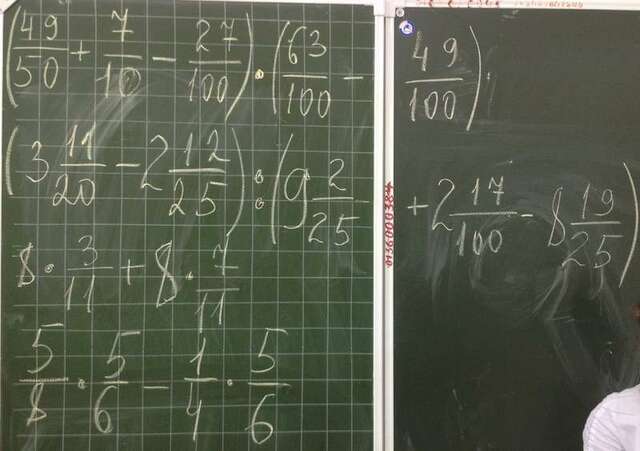 (49/50 + 7/10 − 27/100) · (63/100 − 49/100).
(3 11/20 − 2 12/25) : (9 2/25 + 2 17/100 − 8 19/25)
8 · 3/11 + 8 · 7/11
5/8 · 5/6 − 1/4 · 5/6